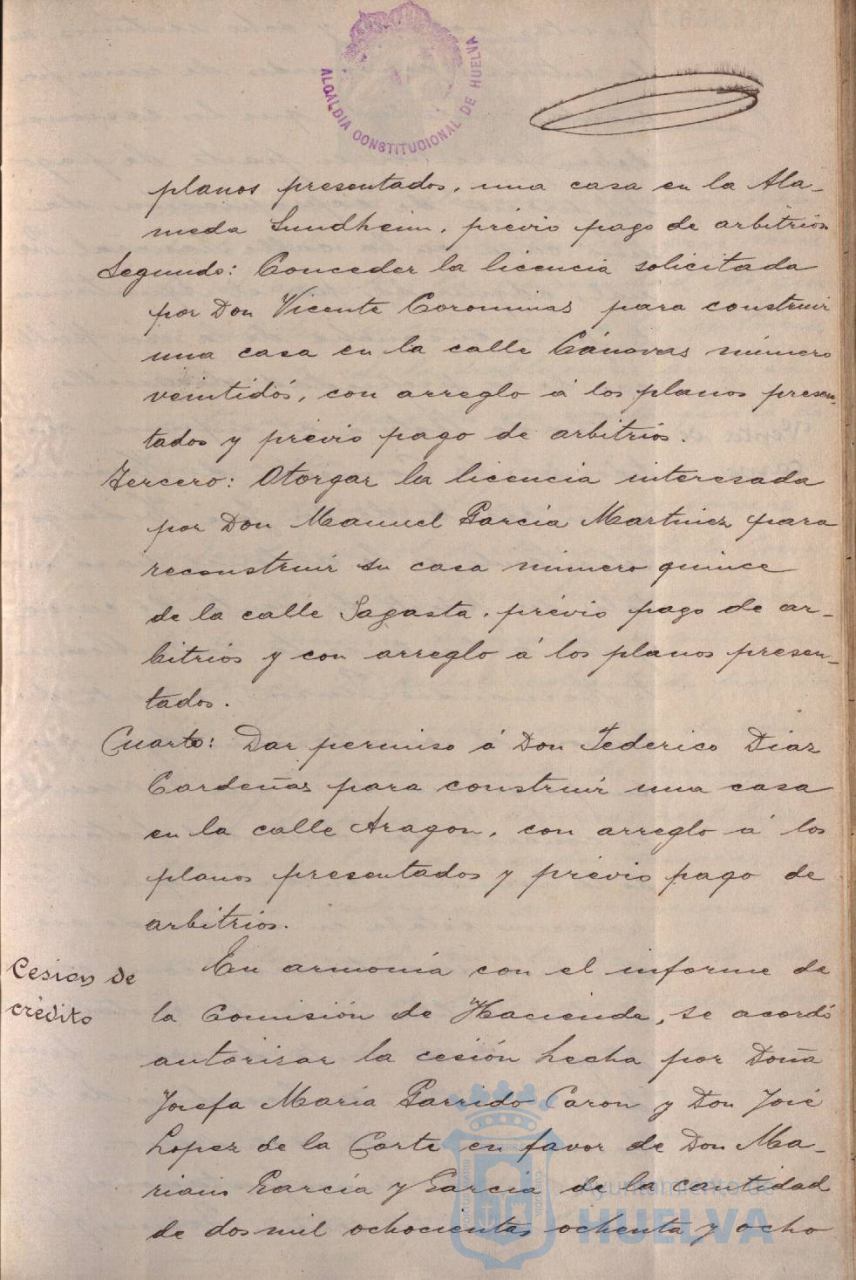 ALCALDIA CONSTITUCIONAL DE HUELVA
planos presentados, una casa en la Ala-
meda Sundheim, prévio pago de arbitrios
Segundo: Conceder la licencia solicitada
por Don Vicente Corominas para construir
una casa en la calle Cánovas número
veintidós, con arreglo á los planos presen-
tados y prévio pago de arbitrios.
Tercero: Otorgar la licencia interesada
por Don Manuel García Martinez para
reconstruir su casa número quince
de la calle Sagasta, prévio pago de ar-
bitrios y con arreglo á los planos presen-
tados.
Cuarto: Dar permiso á Don Federico Diaz
Cardeñas para construir una casa
en la calle Aragon, con arreglo á los
planos presentados y prévio pago de
arbitrios.
Cesion de
crédito
En armonía con el informe de
la Comisión de Hacienda, se acordó
autorizar la cesión hecha por Doña
Josefa María Garrido Caron y Don José
Lopez de la Corte en favor de Don Ma-
riano García y García de la cantidad
de dos mil ochocientas ochenta y ocho
Ayuntamiento de
HUELVA